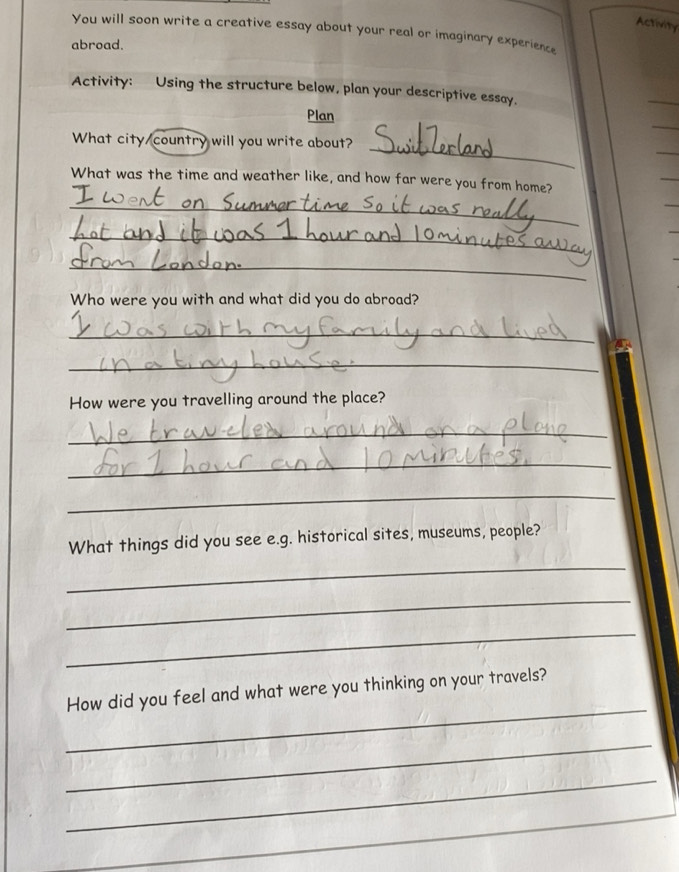 You will soon write a creative essay about your real or imaginary experience
abroad.
Activity
Activity: Using the structure below, plan your descriptive essay.
Plan
What city/country will you write about? Switzerland
What was the time and weather like, and how far were you from home?
I went on Summer time so it was really
hot and it was 1 hour and 10 minutes away
from London.
Who were you with and what did you do abroad?
I was with my family and lived
in a tiny house.
How were you travelling around the place?
We traveled around on a plane
for 1 hour and 10 minutes.
What things did you see e.g. historical sites, museums, people?
How did you feel and what were you thinking on your travels?